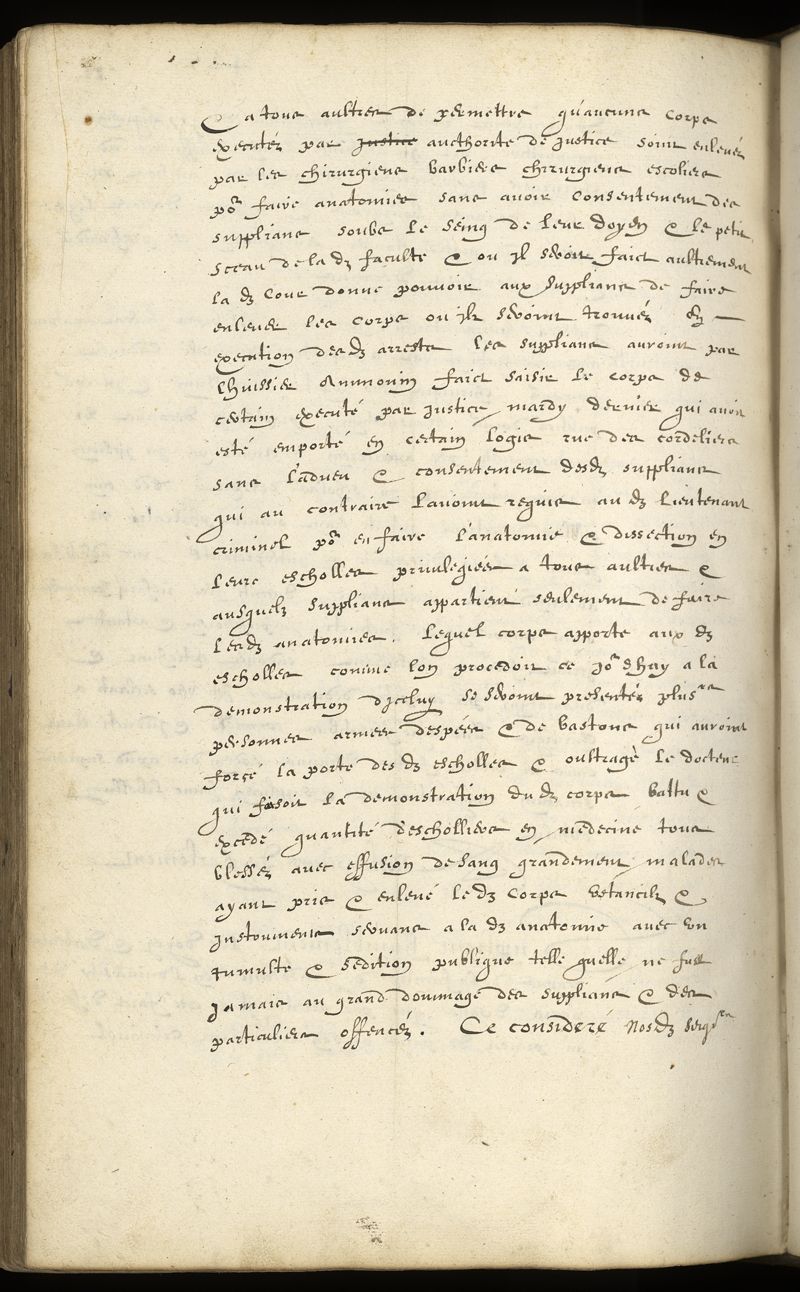 & a tous aultres de permettre qu'aucuns corps
executéz par justice aucthorité de justice soint enlevéz
par les chirurgiens barbiers chirurgiens escoliers
po.r faire anatomies sans avoir consentement des
supplians soubs le seing de leur doyen & le petit
sceau de lad. faculté & ou il seroit faict aultrement
lad. Cour donne pouvoir aux supplians de faire
enlever les corps ou ils seroint trouvéz en
execution desd. arrests les supplians auroint par
lhuissier faict saisir le corps de
certain executé par justice mardy dernier qui avoit
esté emporté en certain logis rue des cordeliers
sans l'adveu & consentement desd. supplians
qui au contraire l'avoint requis aud. lieutenant
criminel po.r en faire l'anatomie & dissection en
leurs escholles privilegiées a tous aultres &
ausquels supplians appartient seulement de faire
lesd. anatomies. Lequel corps apporté auxd.
escholles comme lon procedoit ce jo.r dhuy a la
demonstration d'iceluy se seroint presentéz plus.rs
personnes armées despées & de bastons qui auroint
forcé la porte desd. escholles & oultragé le docteur
qui faisoit la demonstration dud. corps battu &
excedé quantité d'escholliers en medecine tous
blesséz avec effusion de sang grandement malades
ayant pris & enlevé led. corps ustancils &
instruments servans a lad. anatomie avec un
tumulte & sedition publique telle quelle ne fust
jamais au grand dommage des supplians & des
particuliers offencéz. Ce consideré Nosd. seigr.s